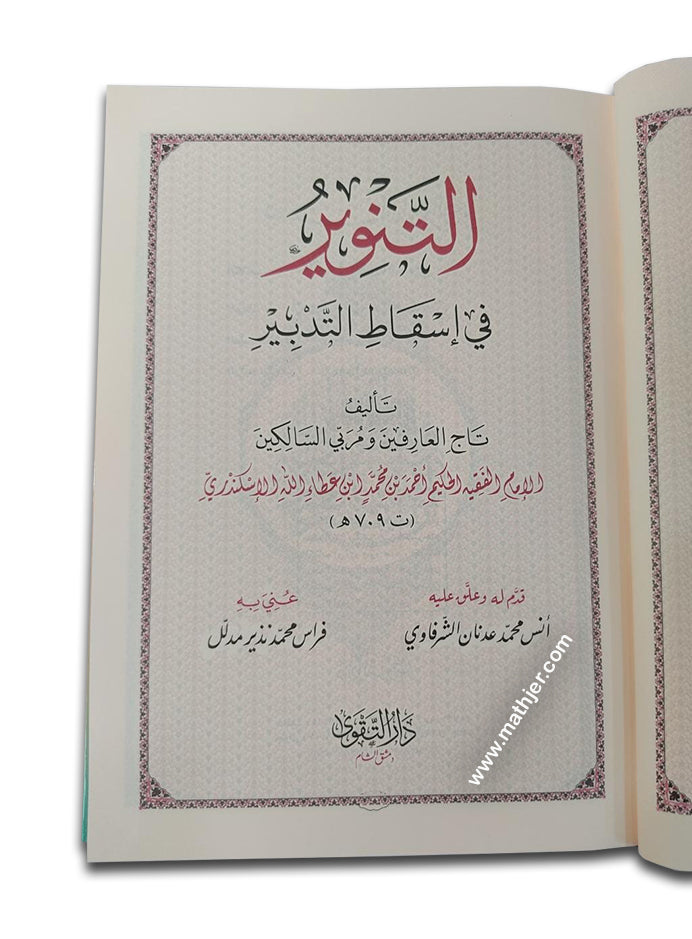 التَّنْوِيرُ
في إسْقَاطِ التَّدْبِيْرِ
تَأليفُ
تَاجِ العَارِفِيْنَ وَمُرَبِّي السَّالِكِينَ
الإمَامِ الفَقِيهِ الحَكِيمِ أَحْمَدَ بْنِ مُحَمَّدٍ ابْنِ عَطَاءِ اللهِ الإِسْكَنْدَرِيِّ
(ت ٧٠٩ هـ)
قدّم له وعلّق عليه
أنس محمّد عدنان الشّرفاوي
عُنِيَ بِهِ
فراس محمّد نذير مدلّل
دَارُ التَّقْوَى
دمشق الشام
www.mathjer.com